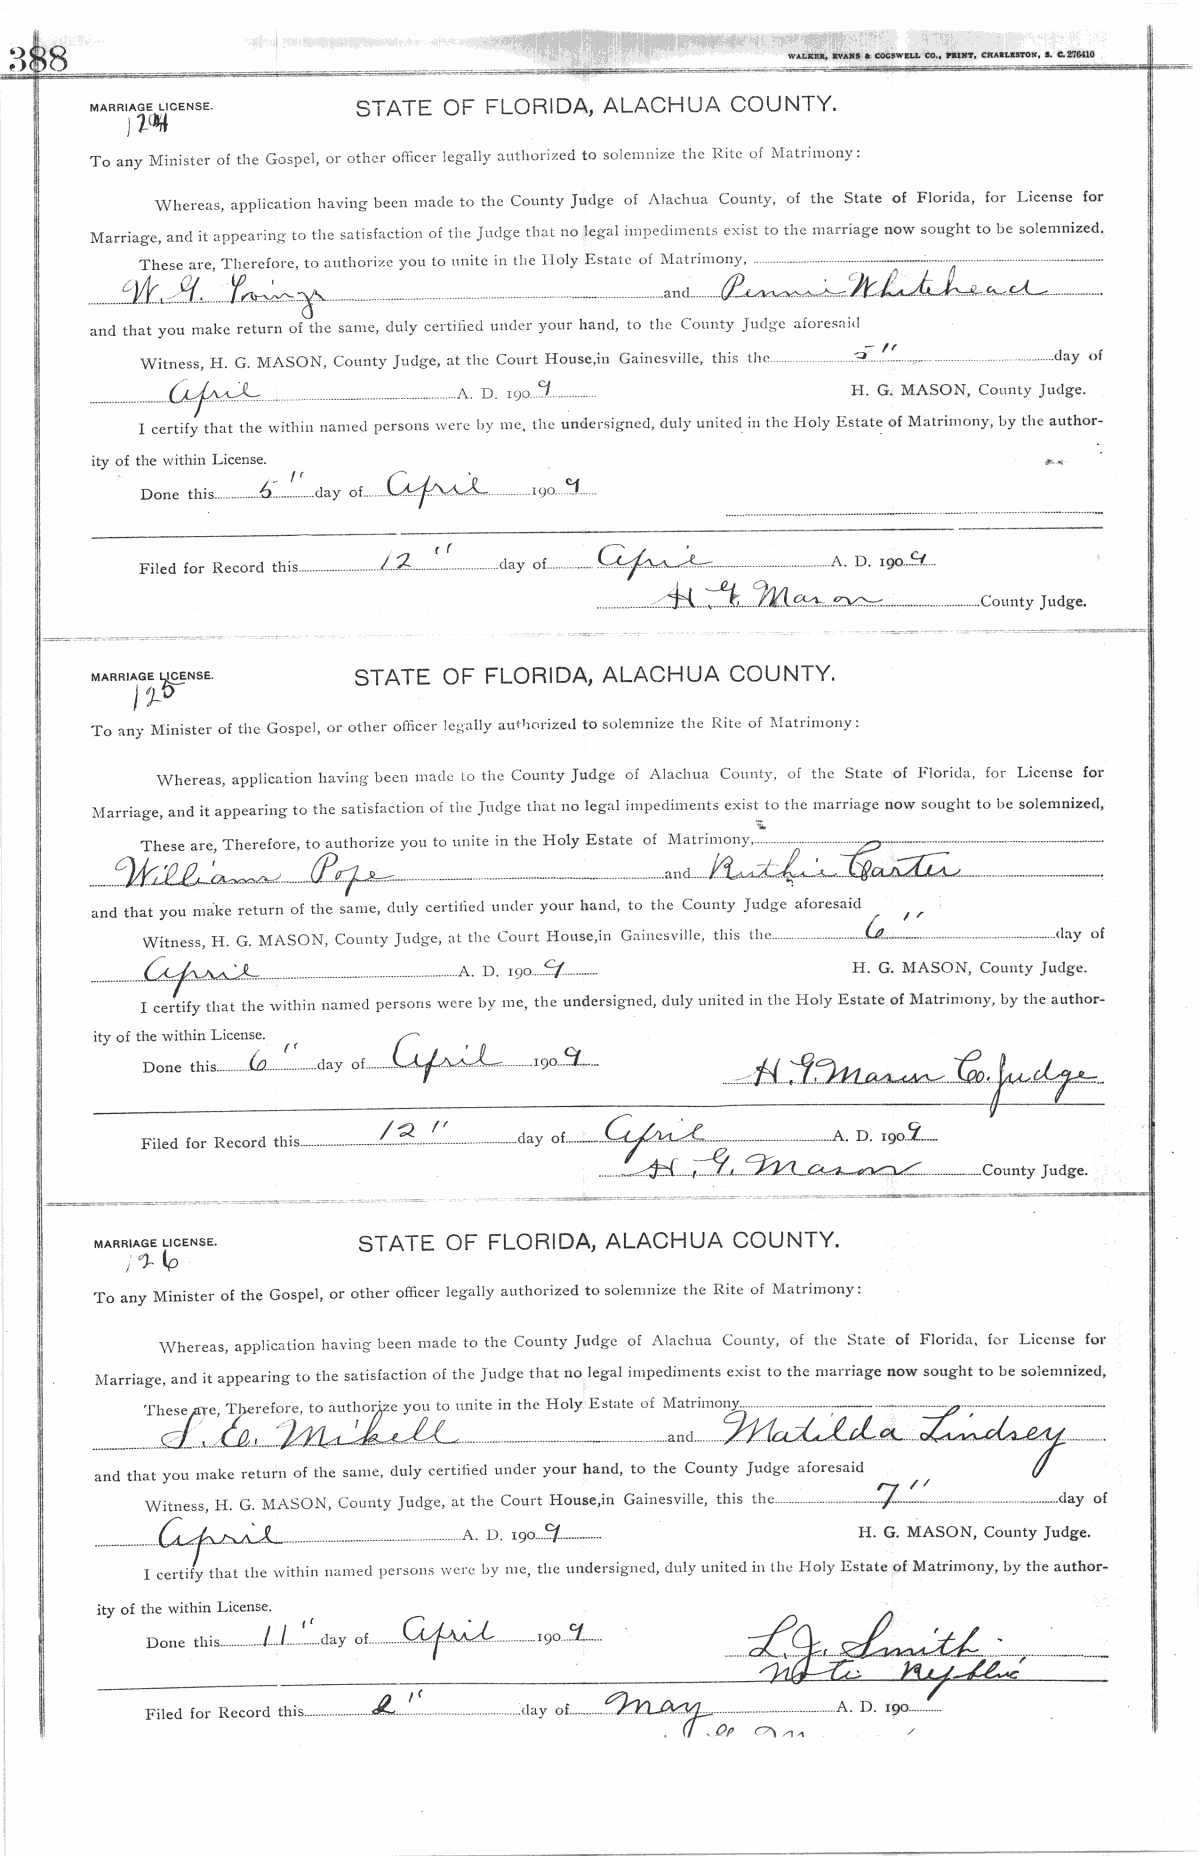 388
WALKER, EVANS & COGSWELL CO., PRINT, CHARLESTON, S. C. 276410
MARRIAGE LICENSE. STATE OF FLORIDA, ALACHUA COUNTY.
124
To any Minister of the Gospel, or other officer legally authorized to solemnize the Rite of Matrimony:
Whereas, application having been made to the County Judge of Alachua County, of the State of Florida, for License for
Marriage, and it appearing to the satisfaction of the Judge that no legal impediments exist to the marriage now sought to be solemnized,
These are, Therefore, to authorize you to unite in the Holy Estate of Matrimony,
W. G. and Pennie Whitehead
and that you make return of the same, duly certified under your hand, to the County Judge aforesaid
Witness, H. G. MASON, County Judge, at the Court House,in Gainesville, this the 5" day of
April A. D. 1909 H. G. MASON, County Judge.
I certify that the within named persons were by me, the undersigned, duly united in the Holy Estate of Matrimony, by the author-
ity of the within License.
Done this 5" day of April 1909
Filed for Record this 12" day of April A. D. 1909
H. G. Mason County Judge.
MARRIAGE LICENSE. STATE OF FLORIDA, ALACHUA COUNTY.
125
To any Minister of the Gospel, or other officer legally authorized to solemnize the Rite of Matrimony:
Whereas, application having been made to the County Judge of Alachua County, of the State of Florida, for License for
Marriage, and it appearing to the satisfaction of the Judge that no legal impediments exist to the marriage now sought to be solemnized,
These are, Therefore, to authorize you to unite in the Holy Estate of Matrimony,
Williams Pope and Ruthie Carter
and that you make return of the same, duly certified under your hand, to the County Judge aforesaid
Witness, H. G. MASON, County Judge, at the Court House,in Gainesville, this the 6" day of
April A. D. 1909 H. G. MASON, County Judge.
I certify that the within named persons were by me, the undersigned, duly united in the Holy Estate of Matrimony, by the author-
ity of the within License.
Done this 6" day of April 1909 H. G. Mason Co. Judge
Filed for Record this 12" day of April A. D. 1909
H. G. Mason County Judge.
MARRIAGE LICENSE. STATE OF FLORIDA, ALACHUA COUNTY.
126
To any Minister of the Gospel, or other officer legally authorized to solemnize the Rite of Matrimony:
Whereas, application having been made to the County Judge of Alachua County, of the State of Florida, for License for
Marriage, and it appearing to the satisfaction of the Judge that no legal impediments exist to the marriage now sought to be solemnized,
These are, Therefore, to authorize you to unite in the Holy Estate of Matrimony
S. E. Mikell and Matilda Lindsey
and that you make return of the same, duly certified under your hand, to the County Judge aforesaid
Witness, H. G. MASON, County Judge, at the Court House,in Gainesville, this the 7" day of
April A. D. 1909 H. G. MASON, County Judge.
I certify that the within named persons were by me, the undersigned, duly united in the Holy Estate of Matrimony, by the author-
ity of the within License.
Done this 11" day of April 1909 L. J. Smith
Filed for Record this 2" day of May A. D. 190